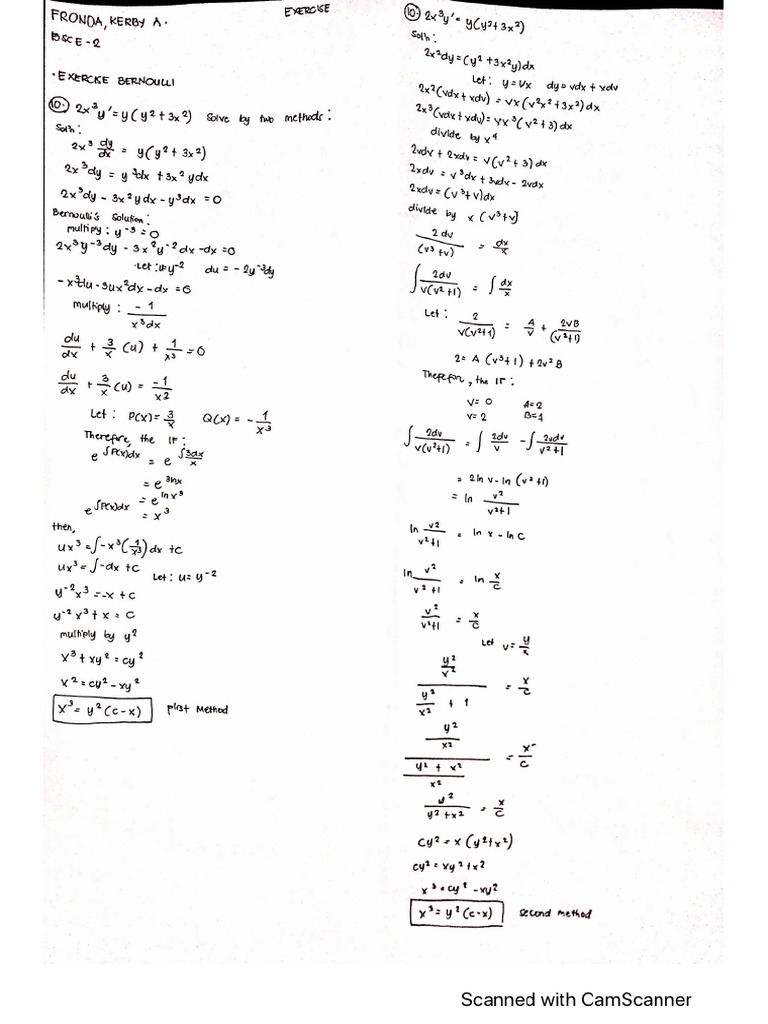 EXERCISE
FRONDA, KERBY A.
BSCE-2
· EXERCISE BERNOULLI
10.) 2x³y' = y(y² + 3x²) Solve by two methods:
Sol'n:
2x³ dy/dx = y(y² + 3x²)
2x³dy = y³dx + 3x²ydx
2x³dy - 3x²ydx - y³dx = 0
Bernoulli's Solution:
multipy: y⁻³ = 0
2x³y⁻³dy - 3x²y⁻²dx - dx = 0
Let: u=y⁻² du = -2y⁻³dy
-x³du - 3ux²dx - dx = 0
multiply: -1/x³dx
du/dx + 3/x (u) + 1/x³ = 0
du/dx + 3/x (u) = -1/x²
Let: P(x) = 3/x Q(x) = -1/x³
Therefore, the IF:
e^∫P(x)dx = e^∫3dx/x
= e^3lnx
= e^ln x³
e^∫P(x)dx = x³
then,
ux³ = ∫-x³(1/x³)dx + c
ux³ = ∫-dx + c
Let: u = y⁻²
y⁻²x³ = -x + c
y⁻²x³ + x = c
multiply by y²
x³ + xy² = cy²
x² = cy² - xy²
x³ = y²(c-x) first Method
10.) 2x³y' = y(y² + 3x²)
Sol'n:
2x²dy = (y² + 3x²y)dx
Let: y = Vx dy = vdx + xdv
2x²(vdx + xdv) = vx(v²x² + 3x²)dx
2x³(vdx + xdv) = vx³(v² + 3)dx
divide by x⁴
2vdx + 2xdv = v(v² + 3)dx
2xdv = v³dx + 3vdx - 2vdx
2xdv = (v³+v)dx
divide by x (v³+v)
2dv/(v³+v) = dx/x
∫ 2dv/v(v²+1) = ∫ dx/x
Let: 2/v(v²+1) = A/v + 2vB/(v²+1)
2 = A(v³+1) + 2v²B
Therefor, the IF:
v = 0 A=2
v = 2 B=1
∫ 2dv/v(v²+1) = ∫ 2dv/v - ∫ 2vdv/v²+1
= 2 ln v - ln (v²+1)
= ln v²/v²+1
ln v²/v²+1 = ln x - ln C
ln v²/v²+1 = ln x/c
v²/v²+1 = x/c
Let v = y/x
(y²/x²)/(y²/x² + 1) = x/c
(y²/x²)/((y² + x²)/x²) = x/c
y²/y²+x² = x/c
cy² = x(y²+x²)
cy² = xy² + x²
x³ = cy² - xy²
x³ = y²(c-x) second method
Scanned with CamScanner